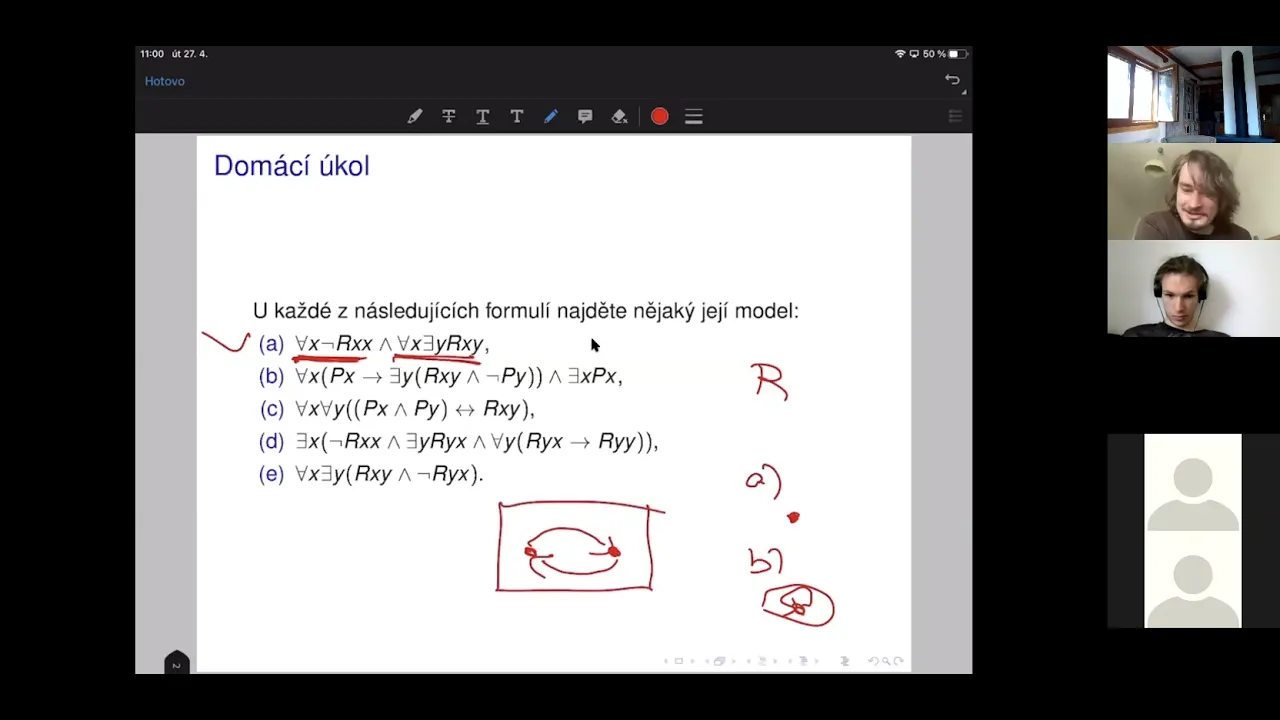 11:00 út 27. 4.
50 %
Hotovo
T T T
Domácí úkol
U každé z následujících formulí najděte nějaký její model:
(a) ∀x¬Rxx ∧ ∀x∃yRxy,
(b) ∀x(Px → ∃y(Rxy ∧ ¬Py)) ∧ ∃xPx,
(c) ∀x∀y((Px ∧ Py) ↔ Rxy),
(d) ∃x(¬Rxx ∧ ∃yRyx ∧ ∀y(Ryx → Ryy)),
(e) ∀x∃y(Rxy ∧ ¬Ryx).
R
a)
b)
2